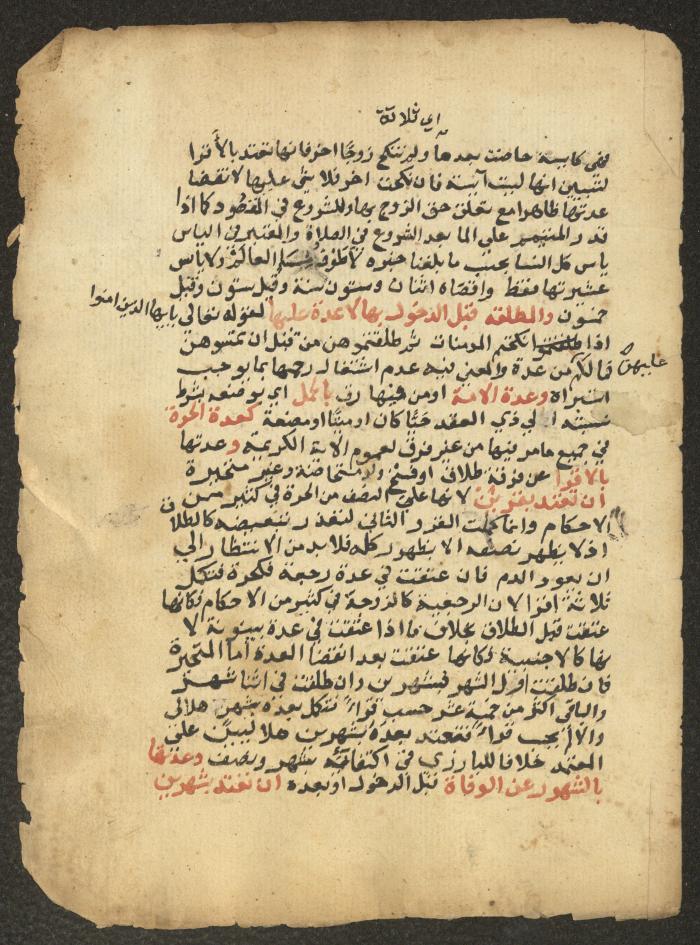 اي ثلاثة
فهي كايسة حاضت بعدها ولم تنكح زوجا اخر فانها تعتد بالأقرا
لتبيين انها ليست آيسة فان نكحت اخر فلا شي عليها لانقضا
عدتها ظاهرا مع تعلق حق الزوج بها وللشروع في المقصود كما اذا
قدر المتيمم علي الما بعد الشروع في الصلاة والمعتبر في الياس
ياس كل النسا بحسب ما يبلغنا خبره لا طوف نسا العالم ولا ياس
عشيرتها فقط واقصاه اثنان وستون سنة وقيل ستون وقيل
خمسون والمطلقه قبل الدخول بها لا عدة عليها لقوله تعالي يا ايها الذين امنوا
اذا نكحتم المومنات ثم طلقتموهن من قبل ان تمسوهن
عليهن
فما لكم من عدة والمعني فيه عدم اشتغال رحمها بما يوجب
استبراه وعدة الامة او من فيها رق بالحمل اي بوضعه بشرط
نسبته الي ذي العقد حيا كان او ميتا او مضغة كعدة الحرة
في جميع ما مر فيها من غير فرق لعموم الاية الكريمة وعدتها
بالاقرا عن فرقة طلاق او فسخ ولو مستحاضة وغير متحيرة
ان تعتد بقروين لانها علي النصف من الحرة في كثير من
الاحكام وانما كملت القرو الثاني لتعذر تبعيضه كالطلاق
اذ لا يظهر نصفه الا بظهور كله فلا بد من الانتظار الي
ان يعود الدم فان عتقت في عدة رجعة فكحرة فتكمل
ثلاثة اقرا لان الرجعية كالزوجة في كثير من الاحكام فكانها
عتقت قبل الطلاق بخلاف ما اذا عتقت في عدة بينونة لا
نها كالاجنبية فكانها عتقت بعد انقضا العدة أما المتحيرة
فان طلقت اول الشهر فبشهرين وان طلقت في اثنا شهر
والباقي اكثر من خمسة عشر حسب قرءا فتكمل بعده بشهر هلالي
والا لم يحسب قرءا فتعتد بعده بشهرين هلاليين علي
المعتمد خلافا للبارزي في اكتفائه بشهر ونصف وعدتها
بالشهور عن الوفاة قبل الدخول او بعده ان تعتد بشهرين